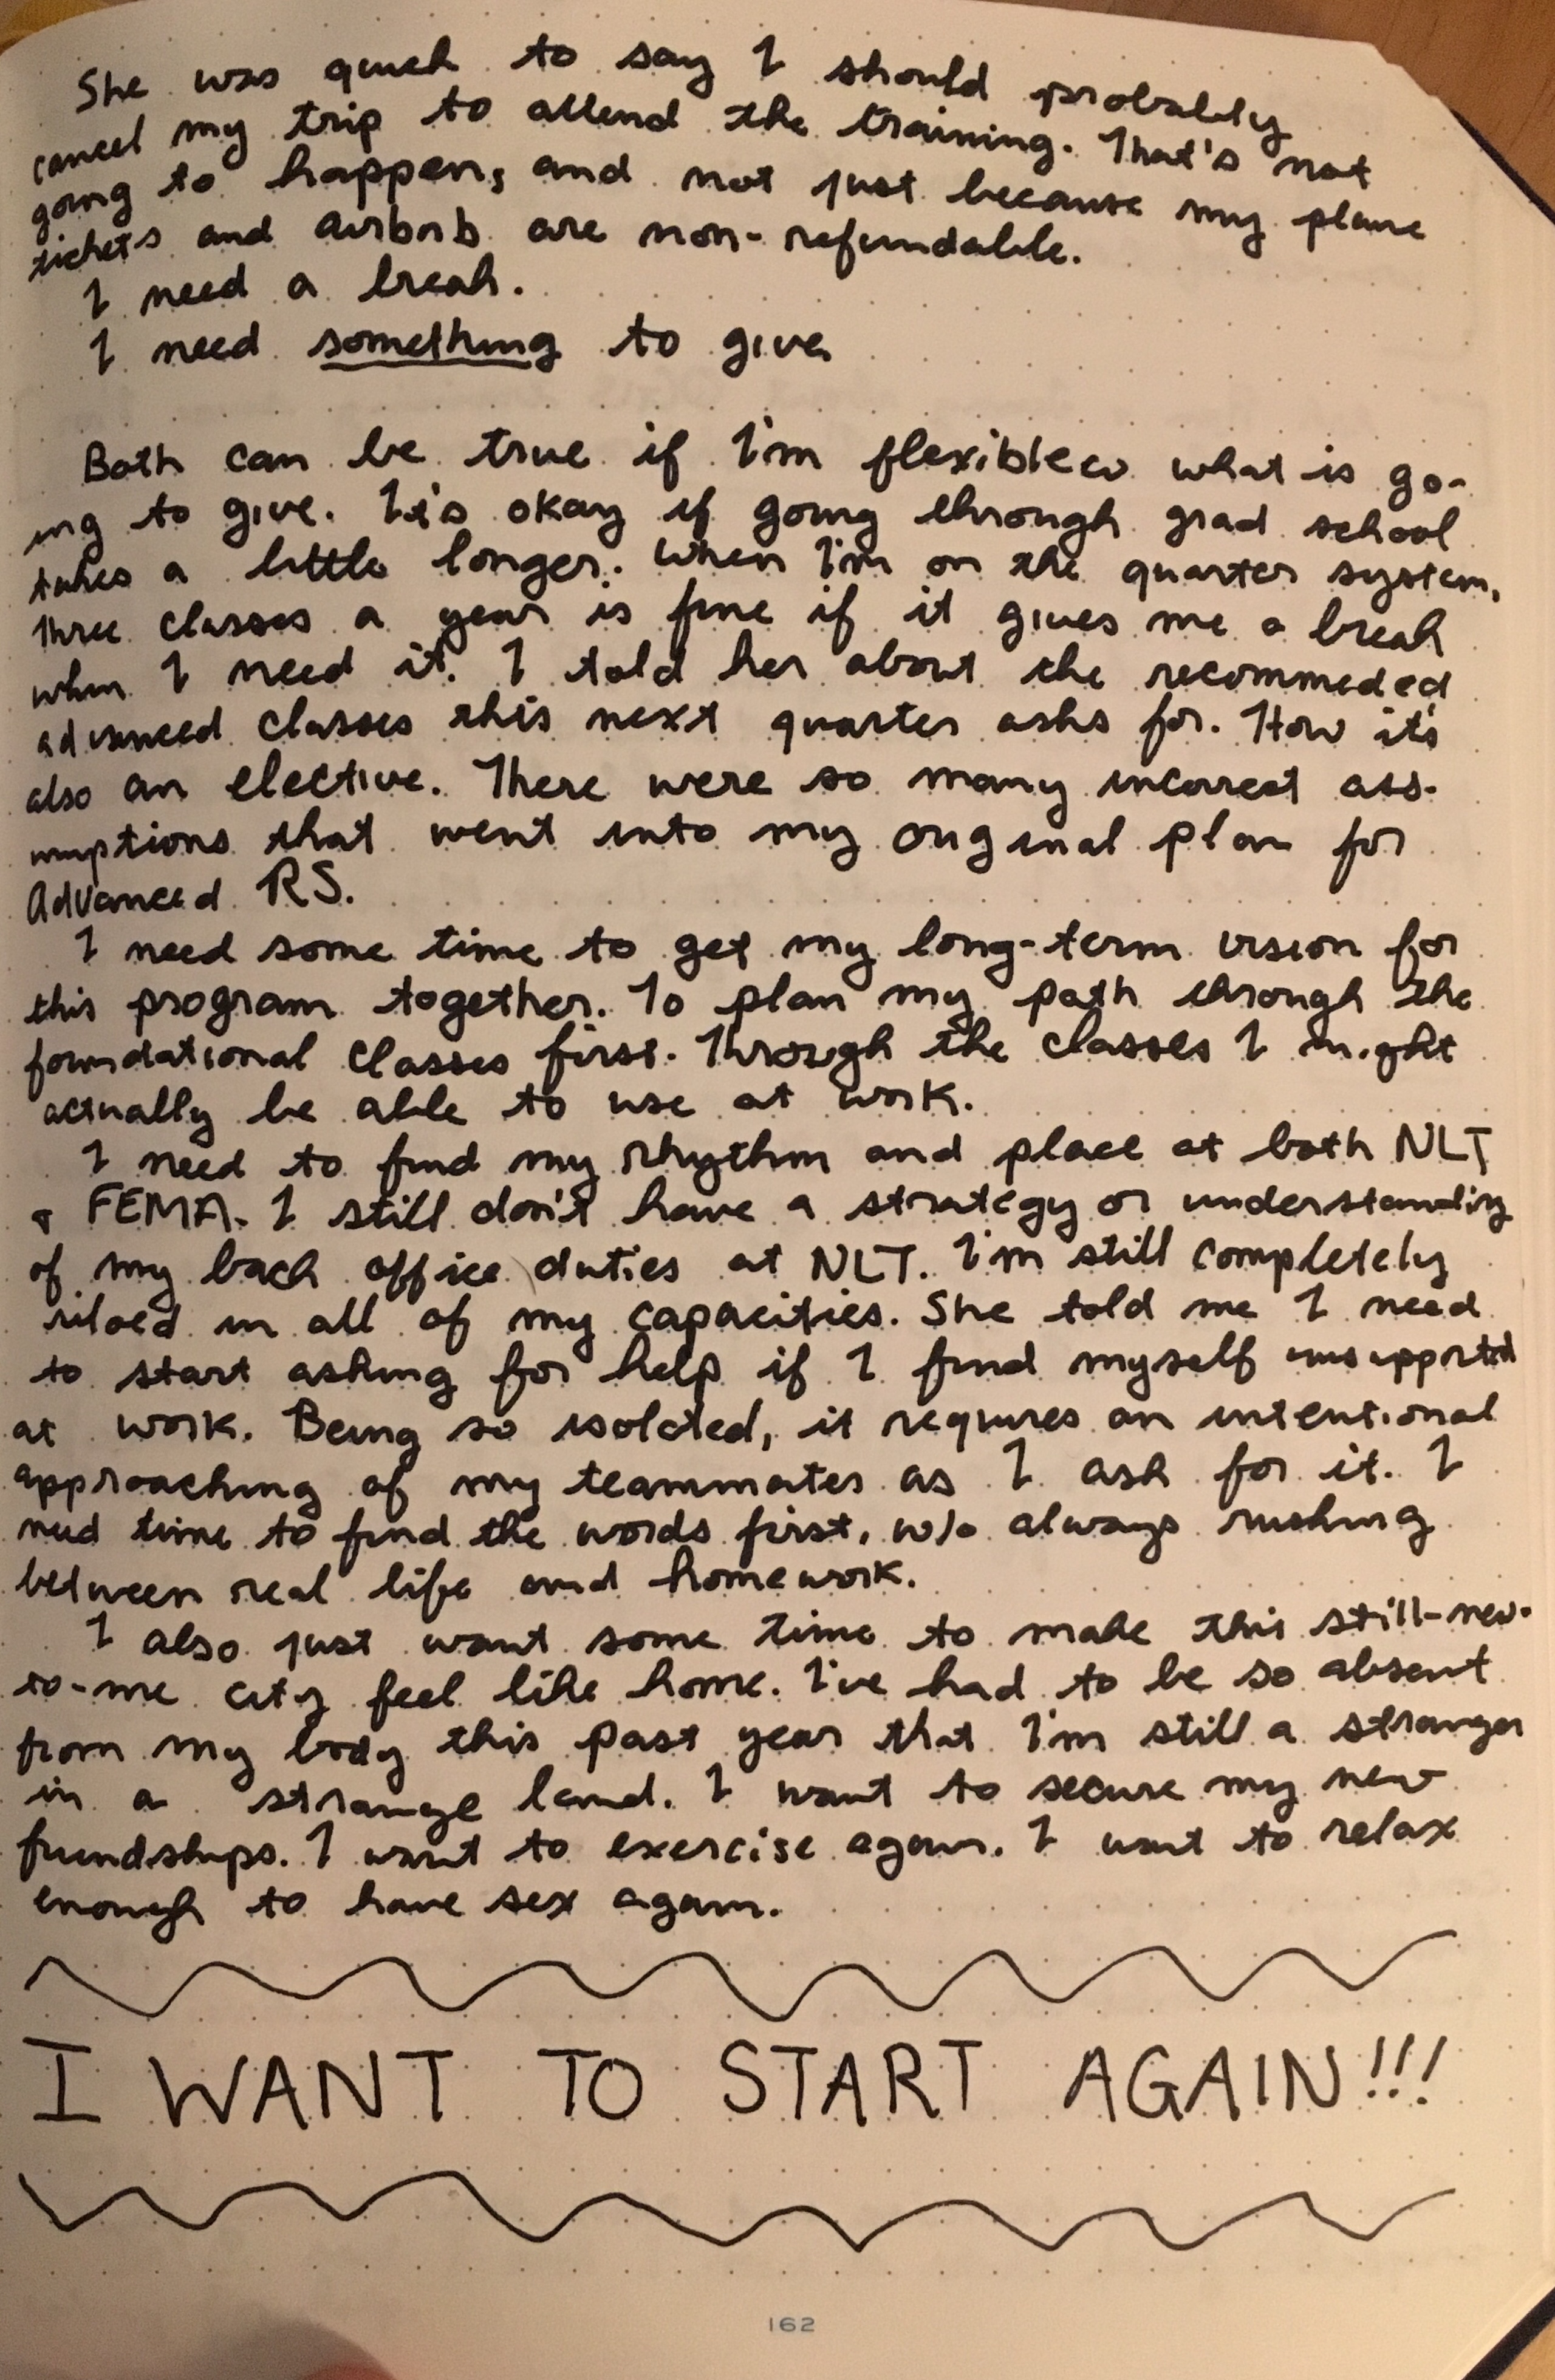 She was quick to say I should probably
cancel my trip to attend the training. That's not
going to happen, and not just because my plane
tickets and airbnb are non-refundable.
I need a break.
I need something to give.
Both can be true if I'm flexible w what is go-
ing to give. It's okay if going through grad school
takes a little longer. When I'm on the quarter system,
three classes a year is fine if it gives me a break
when I need it. I told her about the recommeded
advanced classes this next quarter asks for. How it's
also an elective. There were so many incorrect ass-
umptions that went into my original plan for
Advanced RS.
I need some time to get my long-term vision for
this program together. To plan my path through the
foundational classes first. Through the classes I might
actually be able to use at work.
I need to find my rhythm and place at both NLT
+ FEMA. I still don't have a strategy or understanding
of my back office duties at NLT. I'm still completely
siloed in all of my capacities. She told me I need
to start asking for help if I find myself unsupported
at work. Being so isolated, it requires an intentional
approaching of my teammates as I ask for it. I
need time to find the words first, w/o always rushing
between real life and homework.
I also just want some time to make this still-new-
to-me city feel like home. I've had to be so absent
from my body this past year that I'm still a stranger
in a strange land. I want to secure my new
friendships. I want to exercise again. I want to relax
enough to have sex again.
I WANT TO START AGAIN!!!
162